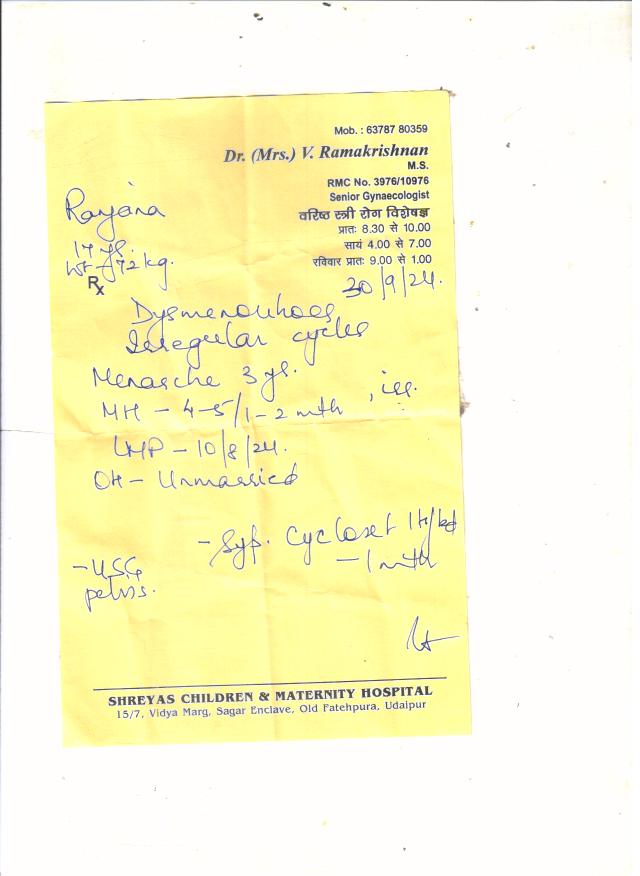 Mob. : 63787 80359
Dr. (Mrs.) V. Ramakrishnan
M.S.
RMC No. 3976/10976
Senior Gynaecologist
वरिष्ठ स्त्री रोग विशेषज्ञ
प्रातः 8.30 से 10.00
सायं 4.00 से 7.00
रविवार प्रातः 9.00 से 1.00
Ranjana
17 yr.
Wt - 72 kg.
Rx
30/9/24.
Dysmenorrhoea
Irregular cycles
Menarche 3 yr.
MH - 4-5/1-2 mth , irr.
LMP - 10/8/24.
OH - Unmarried
- Syp. Cycloset
- 1 mth
- USG
pelvis.
SHREYAS CHILDREN & MATERNITY HOSPITAL
15/7, Vidya Marg, Sagar Enclave, Old Fatehpura, Udaipur